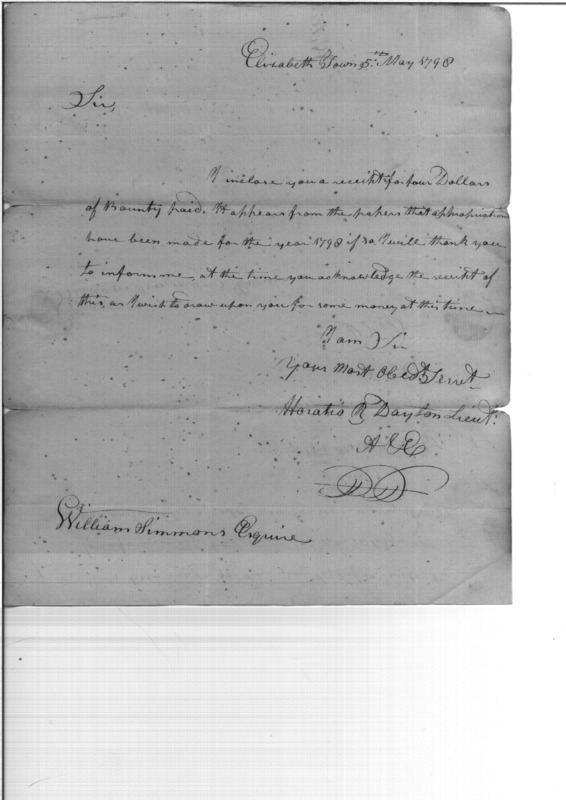 Elizabeth Town 5th May 1798
Sir,
I inclose you a receipt for four Dollars
of Bounty paid. It appears from the papers that appropriations
have been made for the year 1798 if so I will thank you
to inform me, at the time you acknowledge the receipt of
this, as I wish to draw upon you for some money at this time
I am Sir
Your Most Obedt. Servt.
Horatio R Dayton Lieut.
William Simmons Esquire